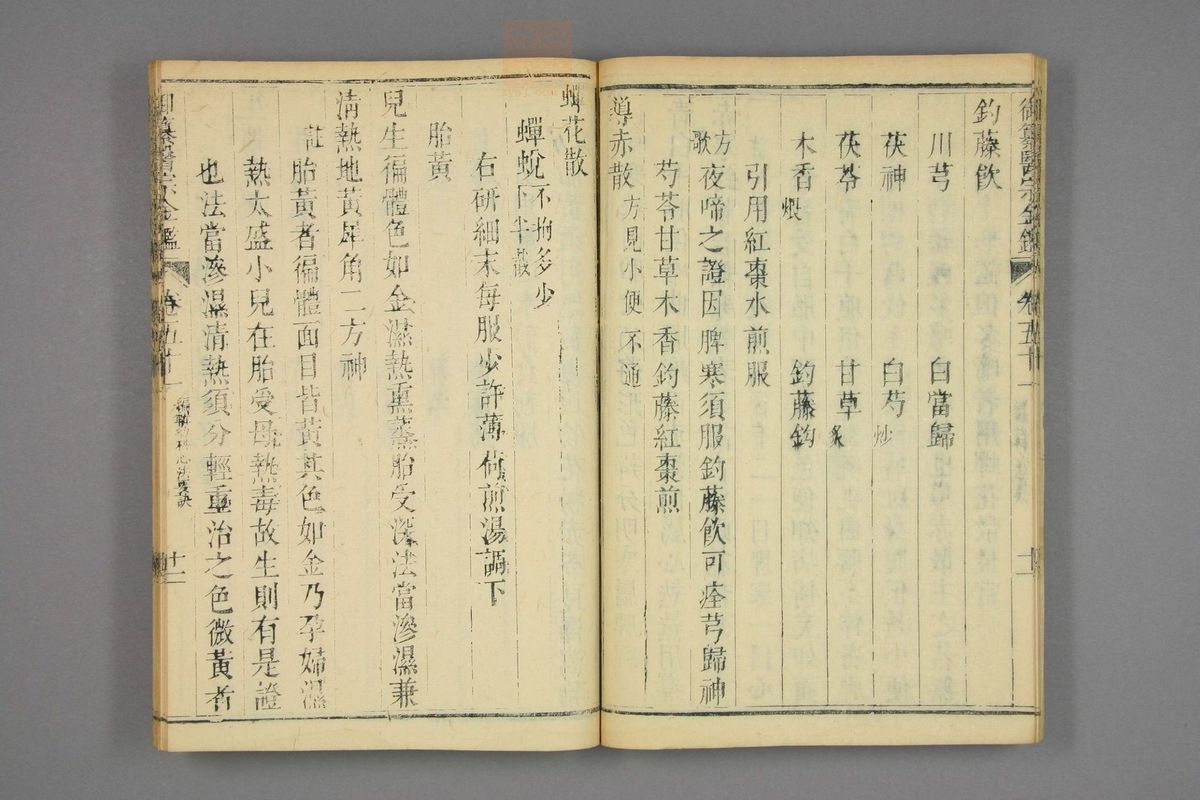 御纂醫宗金鑑 卷五十 十一
釣藤飲
川芎 白當歸
茯神 白芍炒
茯苓 甘草炙
木香煨 釣藤鈎
引用紅棗水煎服
方歌 夜啼之證因脾寒須服釣藤飲可痊芎歸神
芍苓甘草木香釣藤紅棗煎
導赤散方見小便不通
蟬花散
蟬蛻不拘多少下半截
右研細末每服少許薄荷煎湯調下
胎黃
兒生徧體色如金濕熱熏蒸胎受深法當滲濕兼
清熱地黃犀角二方神
註 胎黃者徧體面目皆黃其色如金乃孕婦濕
熱太盛小兒在胎受母熱毒故生則有是證
也法當滲濕清熱須分輕重治之色微黃者
御纂醫宗金鑑 卷五十 編輯幼科心法要訣 十二